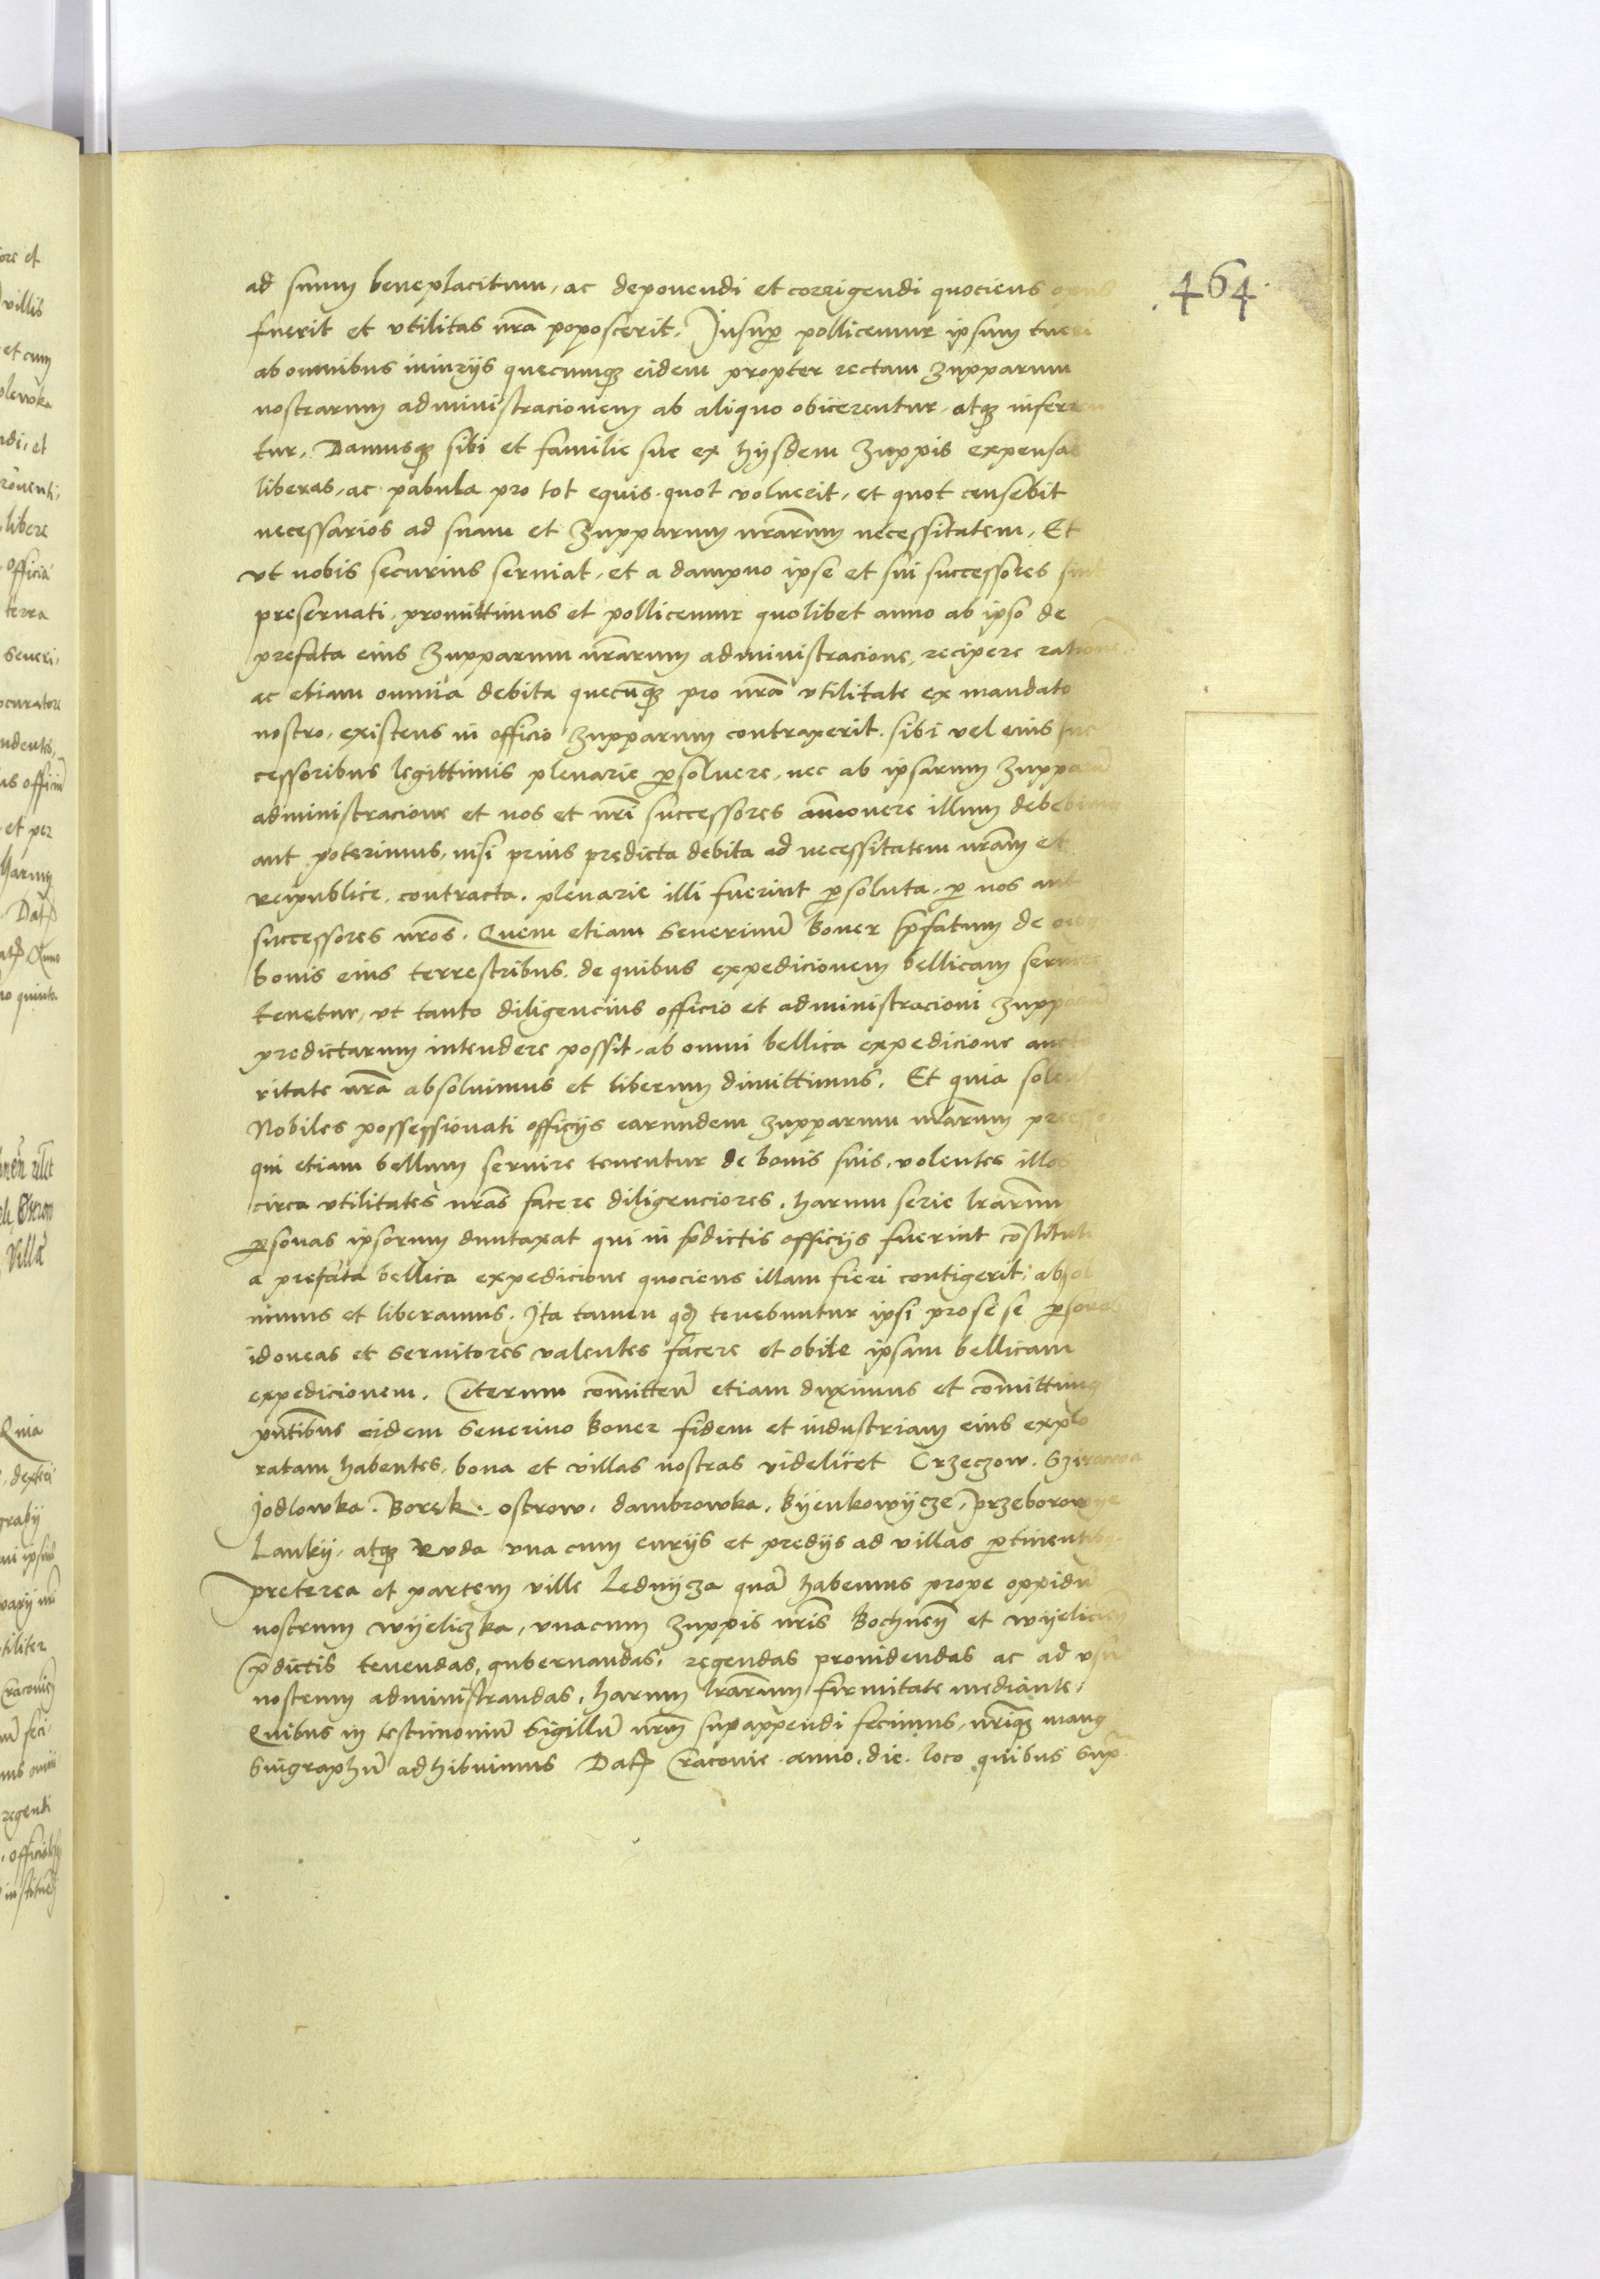 464.
ad suum beneplacitum, ac deponendi et corrigendi quociens opus
fuerit et vtilitas nrã poposcerit. Insup pollicemur ipsum tueri
ab omnibus iniurijs quecumqz eidem propter rectam zupparum
nostrarum administracionem ab aliquo obicerentur, atqz inferren
tur. Damusqz sibi et familie sue ex hijsdem Zuppis expensas
liberas, ac pabula pro tot equis quot voluerit, et quot censebit
necessarios ad suam et Zupparum nrãrum necessitatem. Et
vt nobis securius seruiat, et a dampno ipse et sui successores sint
preseruati, promittimus et pollicemur quolibet anno ab ipso de
prefata eius Zupparum nrãrum administracione, recipere rationẽ
ac etiam omnia debita quecũqz pro nrã vtilitate ex mandato
nostro, existens in officio zupparum contraxerit. sibi vel eius suc
cessoribus legittimis plenarie psoluere, nec ab ipsarum zupparũ
administracione et nos et nrĩ successores amouere illum debebimus
aut poterimus, nisi prius predicta debita ad necessitatem nrãm et
reipublice contracta, plenarie illi fuerint psoluta, p nos aut
successores nrõs. Quem etiam Seuerinũ Boner pfatum de
bonis eius terrestribus, de quibus expedicionem bellicam seruire
tenetur, vt tanto diligencius officio et administracioni zupparũ
predictarum intendere possit, ab omni bellica expedicione aucto
ritate nrã absoluimus et liberum dimittimus. Et quia solent
Nobiles possessionati officijs earundem zupparum nrãrum
qui etiam bellum seruire tenentur de bonis suis, volentes illos
circa vtilitates nrãs facere diligenciores, harum serie lrãrum
psonas ipsorum duntaxat qui in pdictis officijs fuerint cõstituti
a prefata bellica expedicione quociens illam fieri contigerit, absol
uimus et liberamus. Ita tamen qd tenebuntur ipsi pro se se psonas
idoneas et seruitores valentes facere et obire ipsam bellicam
expedicionem. Ceterum cõmittend etiam duximus et cõmittimus
pñtibus eidem Seuerino Boner fidem et industriam eius explo
ratam habentes, bona et villas nostras videlicet Crzeczow. Szirawa
Jodlowka. Borek. ostrow. dambrowka. Byenkowycze, Przeborowye
Lanky, atqz Ruda vna cum curijs et predijs ad villas ptinentibus
preterea et partem ville Lednycza quã habemus prope oppidũ
nostrum wyeliczka, vnacum zuppis nrĩs Bochneñ et wyelicieñ
pdictis tenendas, gubernandas, regendas prouidendas ac ad vsũ
nostrum administrandas, harum lrãrum firmitate mediante.
Quibus in testimoniũ Sigillũ nrm supappendi fecimus, nreqz manꝰ
Singraphũ adhibuimus Dat Cracouie anno. die. loco quibus sup.